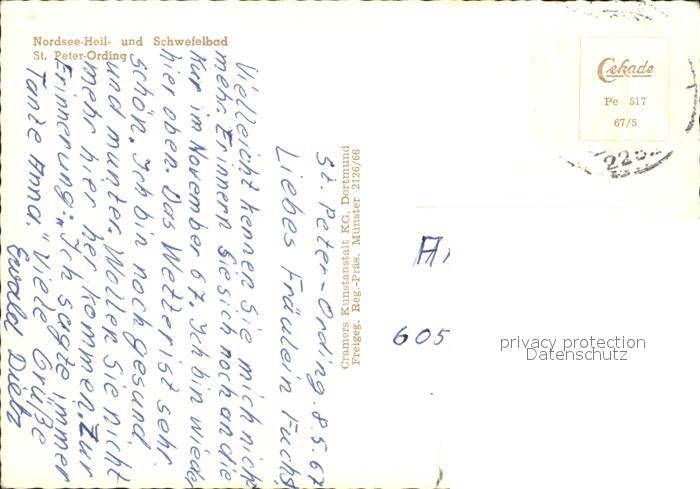 Nordsee-Heil- und Schwefelbad
St. Peter-Ording
Cekade
Pe 517
67/5
225
St. Peter-Ording. 8.5.67
Liebes Fräulein Fuchs,
Vielleicht kennen Sie mich nicht
mehr. Erinnern Sie sich noch an die
Kur im November 67. Ich bin wieder
hier oben. Das Wetter ist sehr
schön. Ich bin noch gesund
und munter. Wollen Sie nicht
mehr hier her kommen. Zur
Erinnerung: "Ich sagte immer
Tante Anna." Viele Grüße
Ewald Dietz
Cramers Kunstanstalt KG. Dortmund
Freigeg. Reg.-Präs. Münster 2126/66
605
privacy protection
Datenschutz